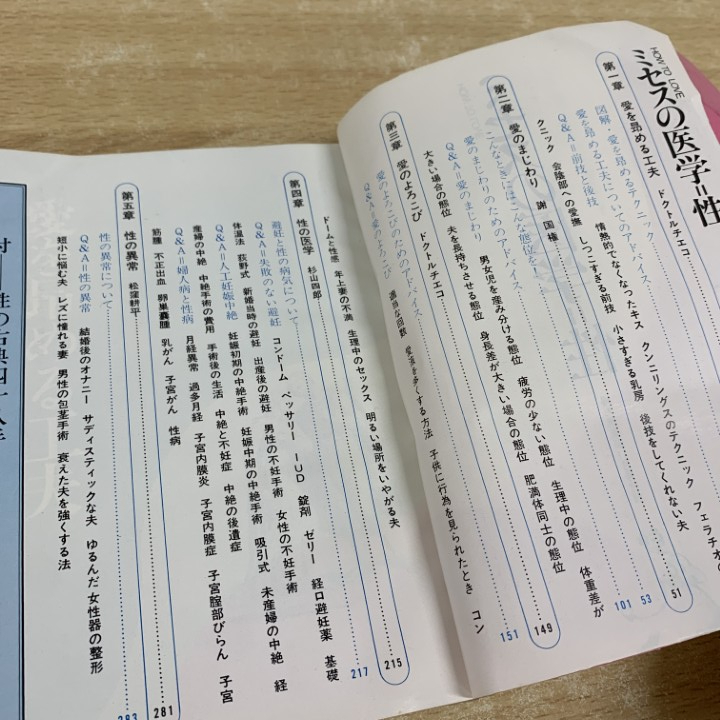 HOW TO LOVE
ミセスの医学=性
第一章 愛を昂める工夫 ドクトルチエコ 51
図解・愛を昂めるテクニック
愛を昂める工夫についてのアドバイス 53
Q&A=前技と後技 101
情熱的でなくなったキス クンニリングスのテクニック フェラチオの
クニック 会陰部への愛撫 しつこすぎる前技 小さすぎる乳房 後技をしてくれない夫
第二章 愛のまじわり 謝国権 149
こんなときにはこんな態位を
愛のまじわりのためのアドバイス 151
Q&A=愛のまじわり
男女児を産み分ける態位 疲労の少ない態位 生理中の態位 体重差が
大きい場合の態位 夫を長持ちさせる態位 身長差が大きい場合の態位 肥満体同士の態位
第三章 愛のよろこび ドクトルチエコ 215
愛のよろこびのためのアドバイス 217
Q&A=愛のよろこび
適当な回数 愛液を多くする方法 子供に行為を見られたとき コン
ドームと性感 年上妻の不満 生理中のセックス 明るい場所をいやがる夫
第四章 性の医学 杉山四郎
避妊と性の病気について
Q&A=失敗のない避妊
コンドーム ペッサリー IUD 錠剤 ゼリー 経口避妊薬 基礎
体温法 荻野式 新婚当時の避妊 出産後の避妊 男性の不妊手術 女性の不妊手術
Q&A=人工妊娠中絶
妊娠初期の中絶手術 妊娠中期の中絶手術 吸引式 未産婦の中絶 経
産婦の中絶 中絶手術の費用 手術後の生活 中絶と不妊症 中絶の後遺症
Q&A=婦人病と性病
月経異常 過多月経 子宮内膜炎 子宮内膜症 子宮腟部びらん 子宮
筋腫 不正出血 卵巣嚢腫 乳がん 子宮がん 性病
第五章 性の異常 松窪耕平 281
性の異常について 283
Q&A=性の異常
結婚後のオナニー サディスティックな夫 ゆるんだ女性器の整形
短小に悩む夫 レズに憧れる妻 男性の包茎手術 衰えた夫を強くする法